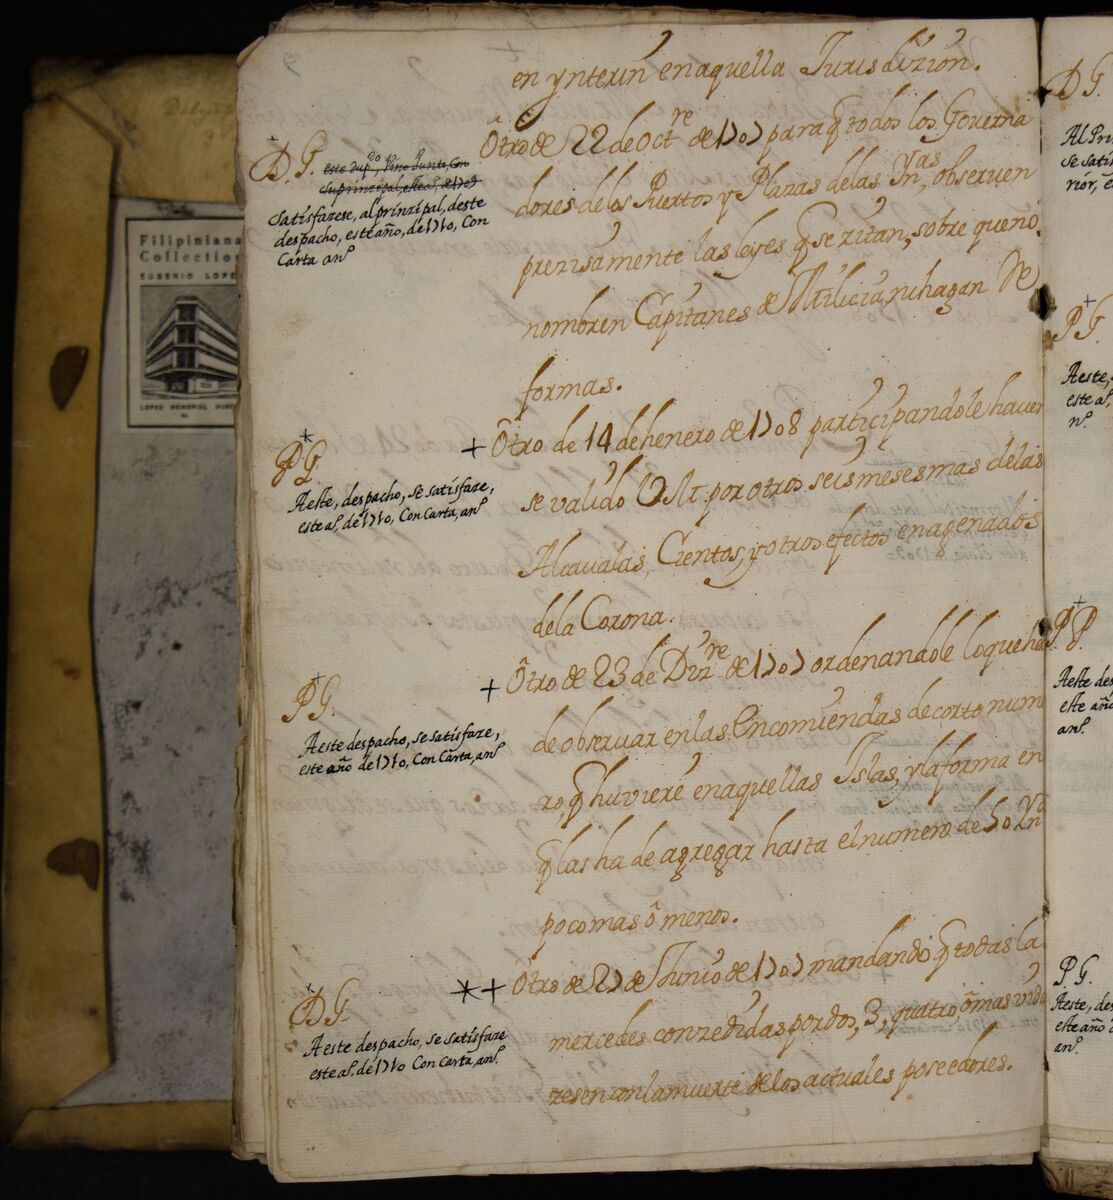 en ynterin en aquella Jurisdizion.
Otro de 22 de Octre de 1707 para q todos los Governa
dores de los Puertos y Plazas de las Ynas, observen
prezisamente las leyes q se zitan, sobre que no
nombren Capitanes de Milicia, ni hagan Re
formas.
D. G. este dupdo, vino junto, con
su prinzipal, este aº, de 1709
satisfazese, al prinzipal, deste
despacho, este año, de 1710, con
Carta anª
+ Otro de 14 de henero de 1708 participandole haver
se valido S. M. por otros seis meses mas de las
Alcavalas, Cientos, y otros efectos enagenados
de la Corona.
P G.
A este, despacho, se satisfaze,
este aº, de 1710, Con Carta, anª
+ Otro de 23 de Dizre de 1707 ordenandole lo que ha
de observar en las Encomiendas de corto nume
ro, q huviere en aquellas Islas, y la forma en
q las ha de agregar hasta el numero de 50 Yndº
poco mas ô menos.
P G.
A este despacho, se satisfaze,
este año de 1710, Con Carta, anª
*+ Otro de 27 de Junio de 1707 mandando q todas la
mercedes conzedidas por dos, 3, quatro, ô mas vida
zesen con la muerte de los actuales poseedores.
D. G.
A este despacho, se satisfaze
este aº, de 1710 Con Carta, anª
Filipiniana
Collection
EUGENIO LOPE
LOPEZ MEMORIAL MUSE
D G.
Al Prin
se satis
rior, e
P G.
A este,
este aº,
nª
P. P.
A este des
este año
anª
P G.
A este, des
este año d
anª